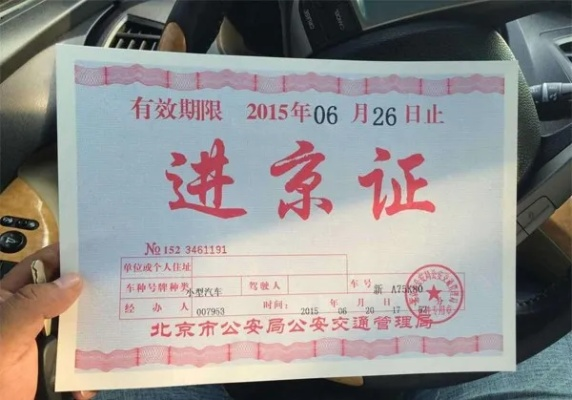 有效期限 2015年06月26日止
进京证
№152 3461191
单位或个人住址
车种号牌种类 小型汽车 驾驶人 车号 新 A75K80
经办人 007953 时间： 2015 年 06 月 20 日 17
北京市公安局公安交通管理局